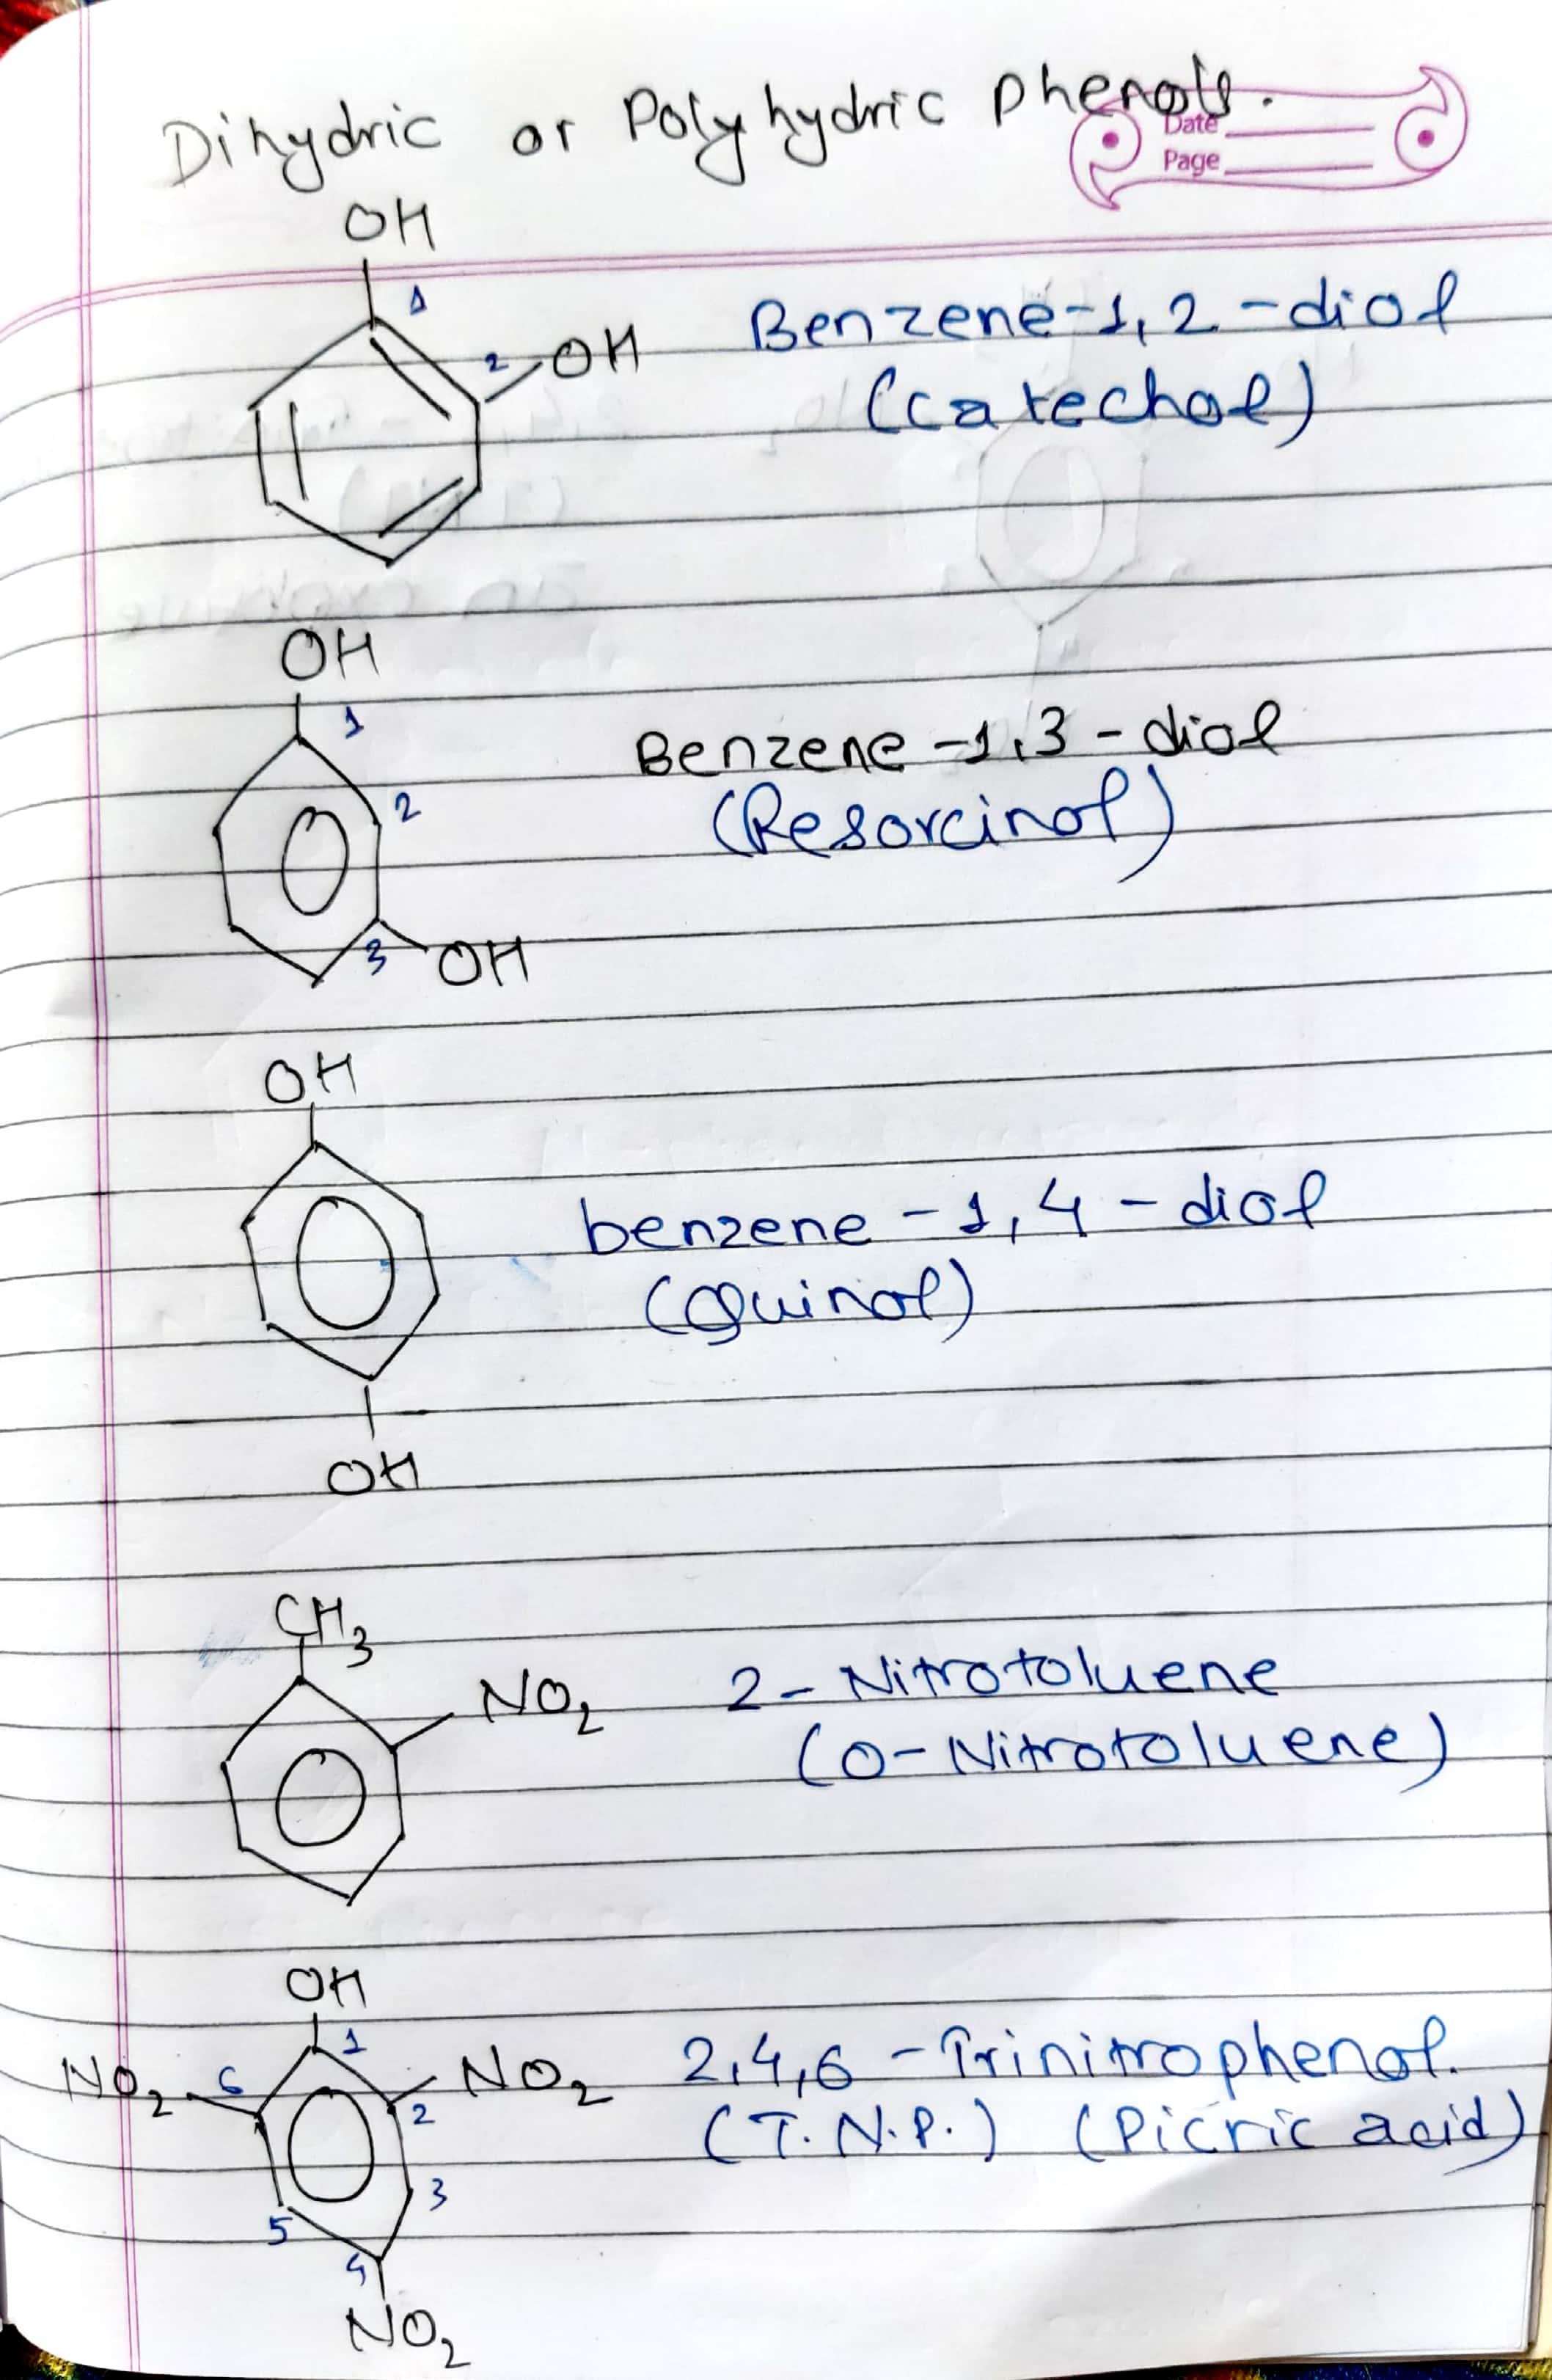 Dihydric or Polyhydric Phenols.
Date
Page
OH
1
2 OH
Benzene-1,2-diol
(catechol)
OH
1
2
3 OH
Benzene-1,3-diol
(Resorcinol)
OH
OH
benzene-1,4-diol
(Quinol)
CH3
NO2
2-Nitrotoluene
(O-Nitrotoluene)
OH
1
NO2 6
2 NO2
3
5
4
NO2
2,4,6-Trinitrophenol.
(T.N.P.) (Picric acid)